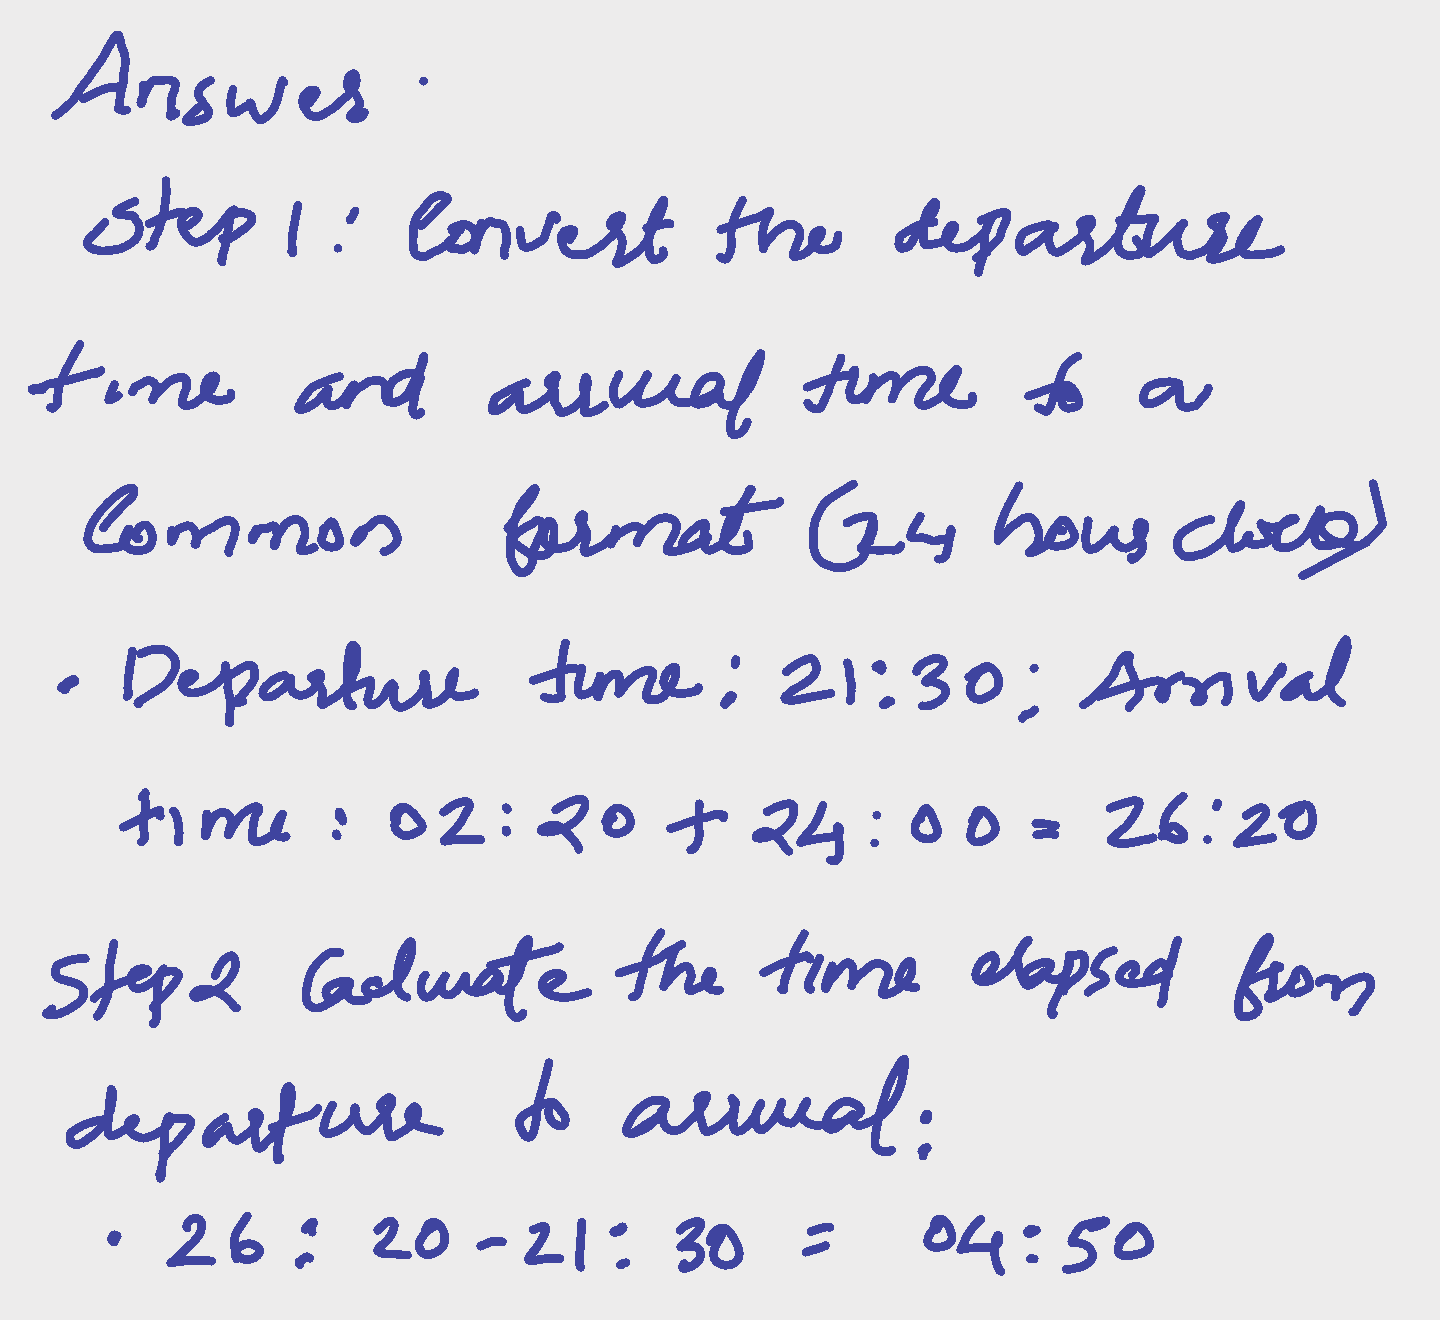 Answer.
Step 1: Convert the departure
time and arrival time to a
Common format (24 hour clock)
• Departure time: 21:30; Arrival
time: 02:20 + 24:00 = 26:20
Step 2 Calculate the time elapsed from
departure to arrival:
• 26:20 - 21:30 = 04:50